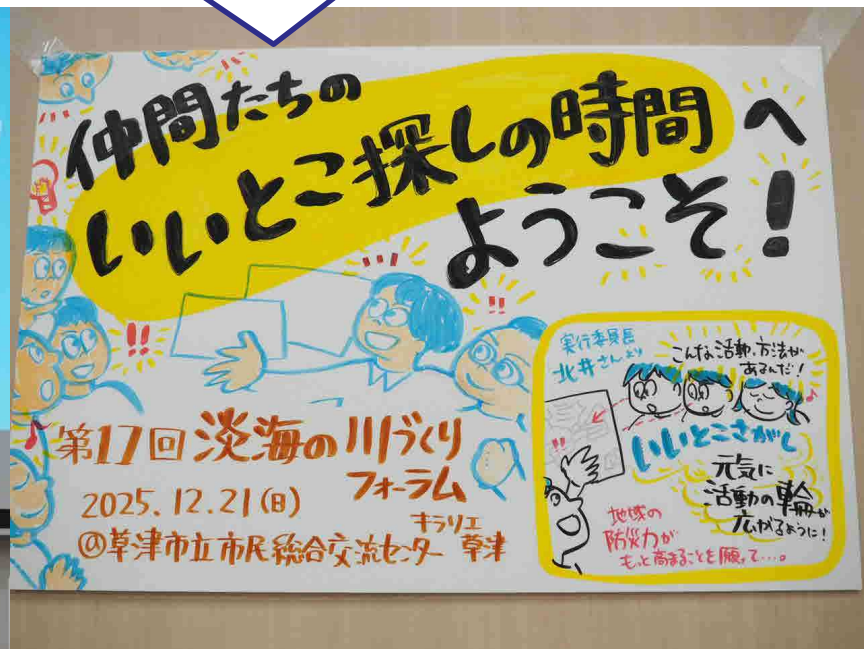 仲間たちの
いいとこ探しの時間へ
ようこそ!
!!
!!!
!!
第17回 淡海の川づくり
フォーラム
2025.12.21(日)
キラリエ
@草津市立市民総合交流センター 草津
実行委員長
北井さんより
こんな活動、方法が
あるんだ!
!!
いいとこさがし
元気に
活動の輪が
広がるように!
地域の
防災力が
もっと高まることを願って…。